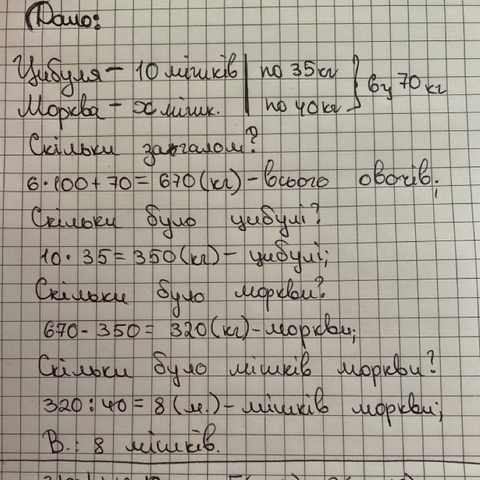 Дано:
Цибуля - 10 мішків | по 35 кг } 6ц 70 кг
Морква - x мішк. | по 40 кг
Скільки загалом?
6·100+70=670(кг)-всього овочів;
Скільки було цибулі?
10·35=350(кг)- цибулі;
Скільки було моркви?
670-350=320(кг)-моркви;
Скільки було мішків моркви?
320:40=8(м.)-мішків моркви;
В.: 8 мішків.